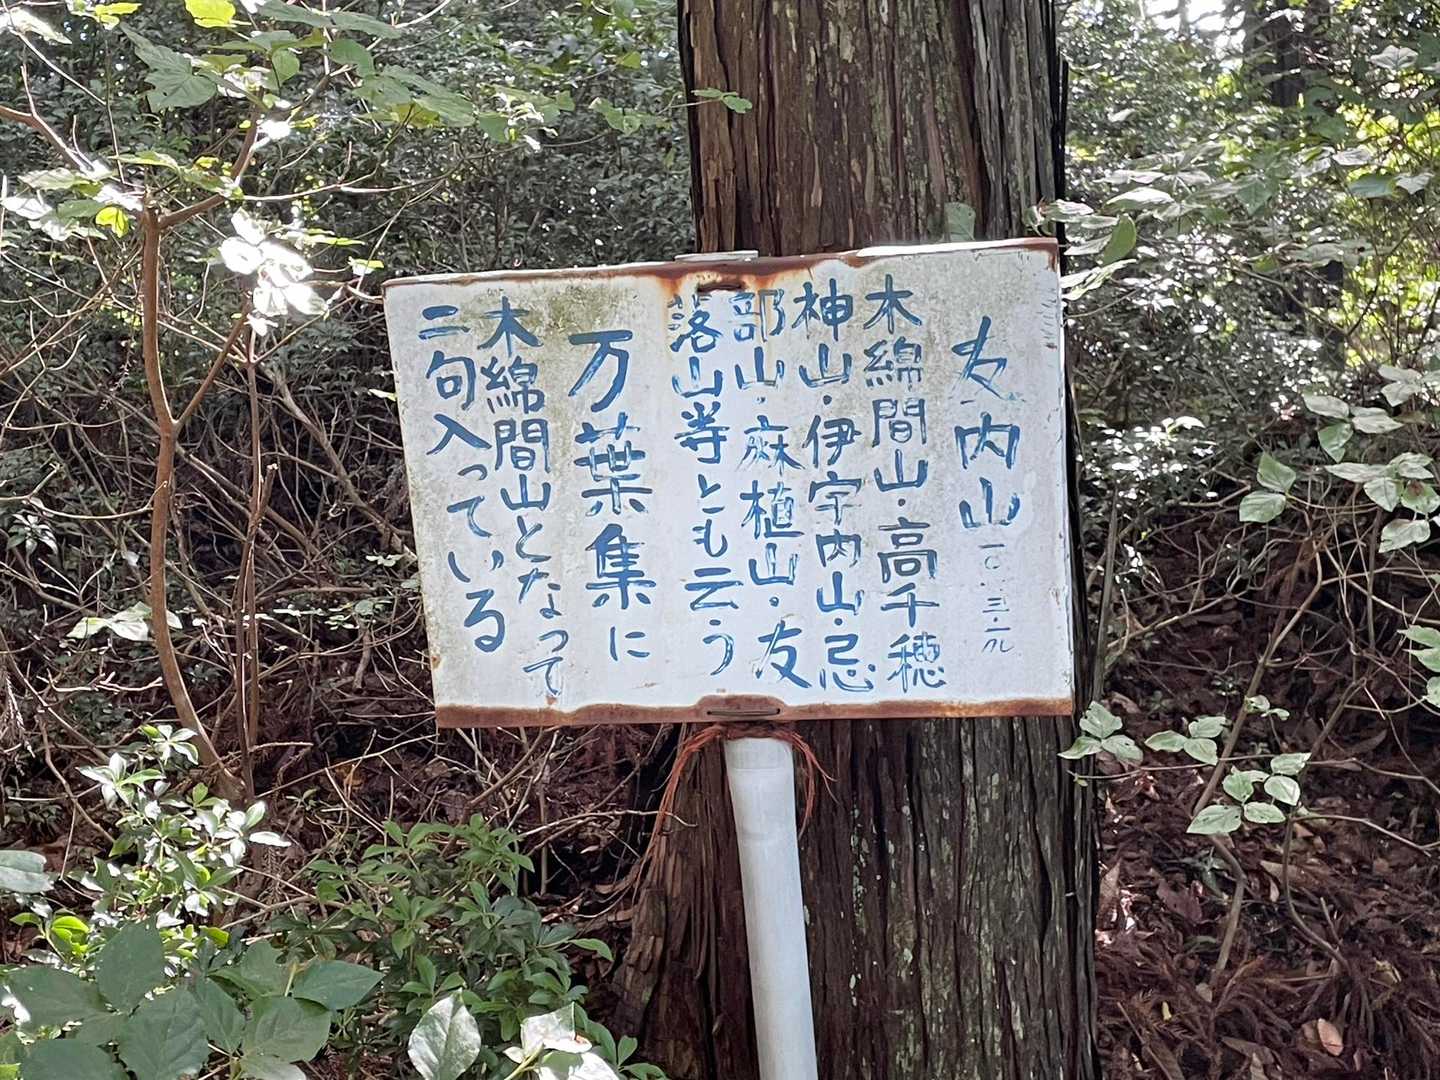 友内山 一〇・三・一九
木綿間山・高千穂
神山・伊宇内山・忌
部山・麻植山・友
落山等とも云う
万葉集に
木綿間山となって
二句入っている